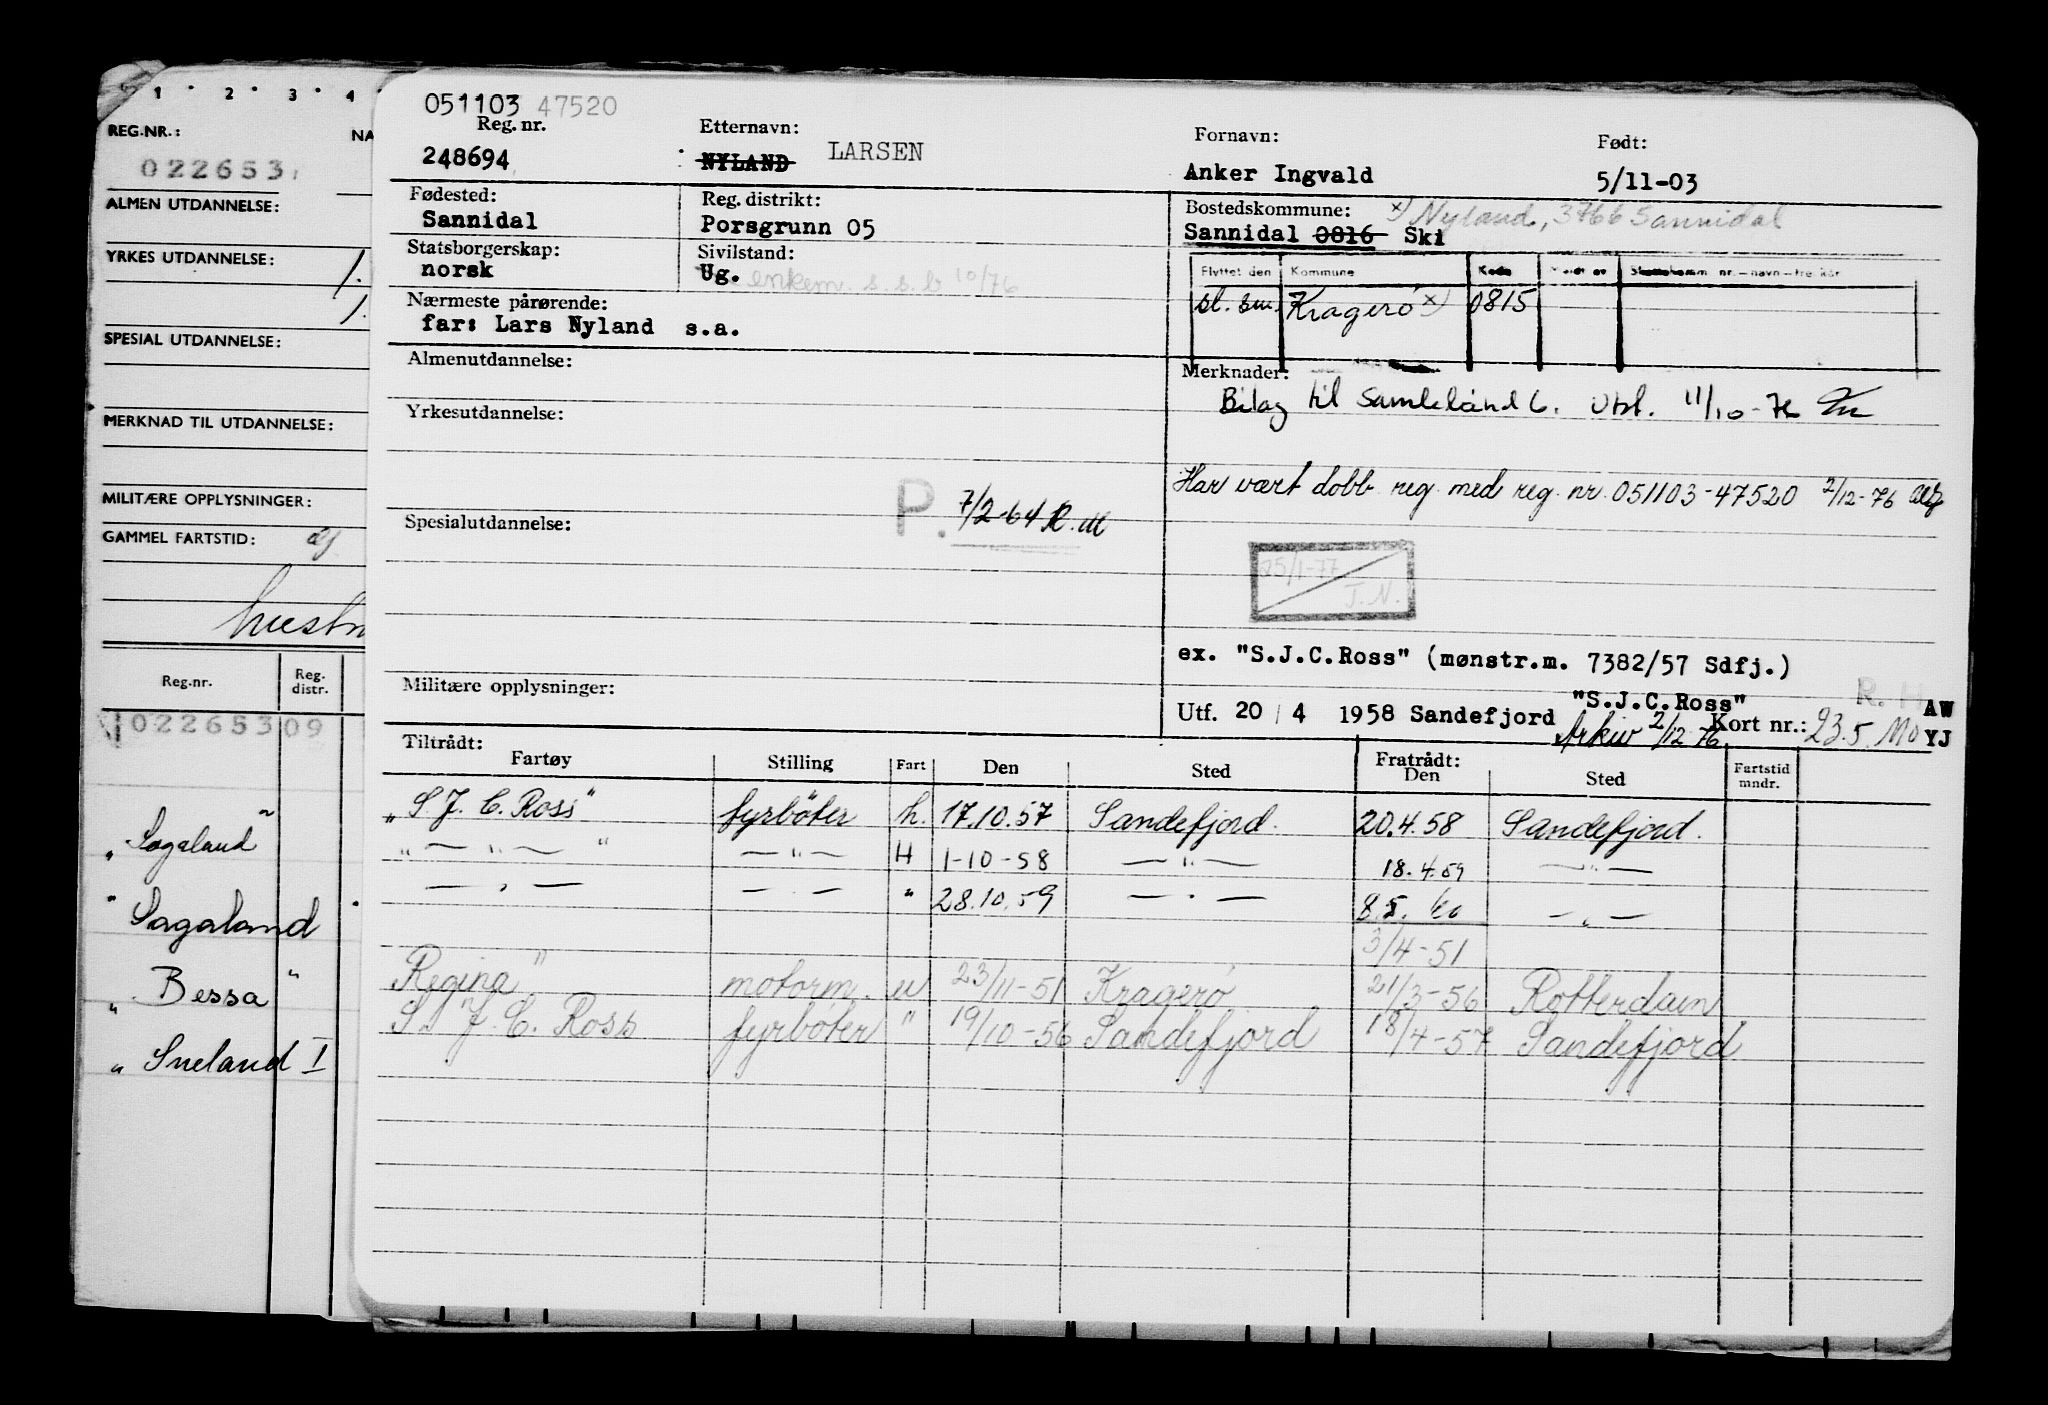 1 2 3 4
REG.NR.: NA
022653
ALMEN UTDANNELSE:
YRKES UTDANNELSE:
1.
1.
SPESIAL UTDANNELSE:
MERKNAD TIL UTDANNELSE:
MILITÆRE OPPLYSNINGER:
GAMMEL FARTSTID:
hustr
Reg.nr. Reg. distr.
022653 09
"Sagaland"
"Sagaland
"Bessa"
"Sneland I
051103 47520
Reg. nr. Etternavn: Fornavn: Født:
248694 NYLAND LARSEN Anker Ingvald 5/11-03
Fødested: Reg. distrikt: Bostedskommune: x) Nyland, 3766 Sannidal
Sannidal Porsgrunn 05 Sannidal 0816 Ski
Statsborgerskap: Sivilstand:
norsk Ug. enkem. s.s.b 10/76
Flyttet den Kommune Kode
sl. sm. Kragerø x) 0815
Nærmeste pårørende:
far: Lars Nyland s.a.
Almenutdannelse: Merknader:
Bilag til Samleband 6. Utst. 11/10-76
Yrkesutdannelse:
Har vært dobb. reg. med reg. nr. 051103-47520 2/12-76
P. 7/2-64 R.M
Spesialutdannelse:
25/1-77
J.N.
ex. "S.J.C.Ross" (mønstr.m. 7382/57 Sdfj.)
Militære opplysninger: "S.J.C.Ross" R. H AW
Utf. 20/4 1958 Sandefjord Arkiv 2/12 76 Kort nr.: 23.5. Mo YJ
Tiltrådt: Fratrådt:
Fartøy Stilling Fart Den Sted Den Sted Fartstid mndr.
"S J. C. Ross" fyrbøter h. 17.10.57 Sandefjord. 20.4.58 Sandefjord.
" — " — " — " — H 1-10-58 — " — 18.4.59 — " —
— " — — " — " 28.10.59 — " — 8.5. 60 — " —
3/4-51
Regina" motorm. u 23/11-51 Kragerø 21/3-56 Rotterdam
S. J. C. Ross fyrbøter " 19/10-56 Sandefjord 18/4-57 Sandefjord